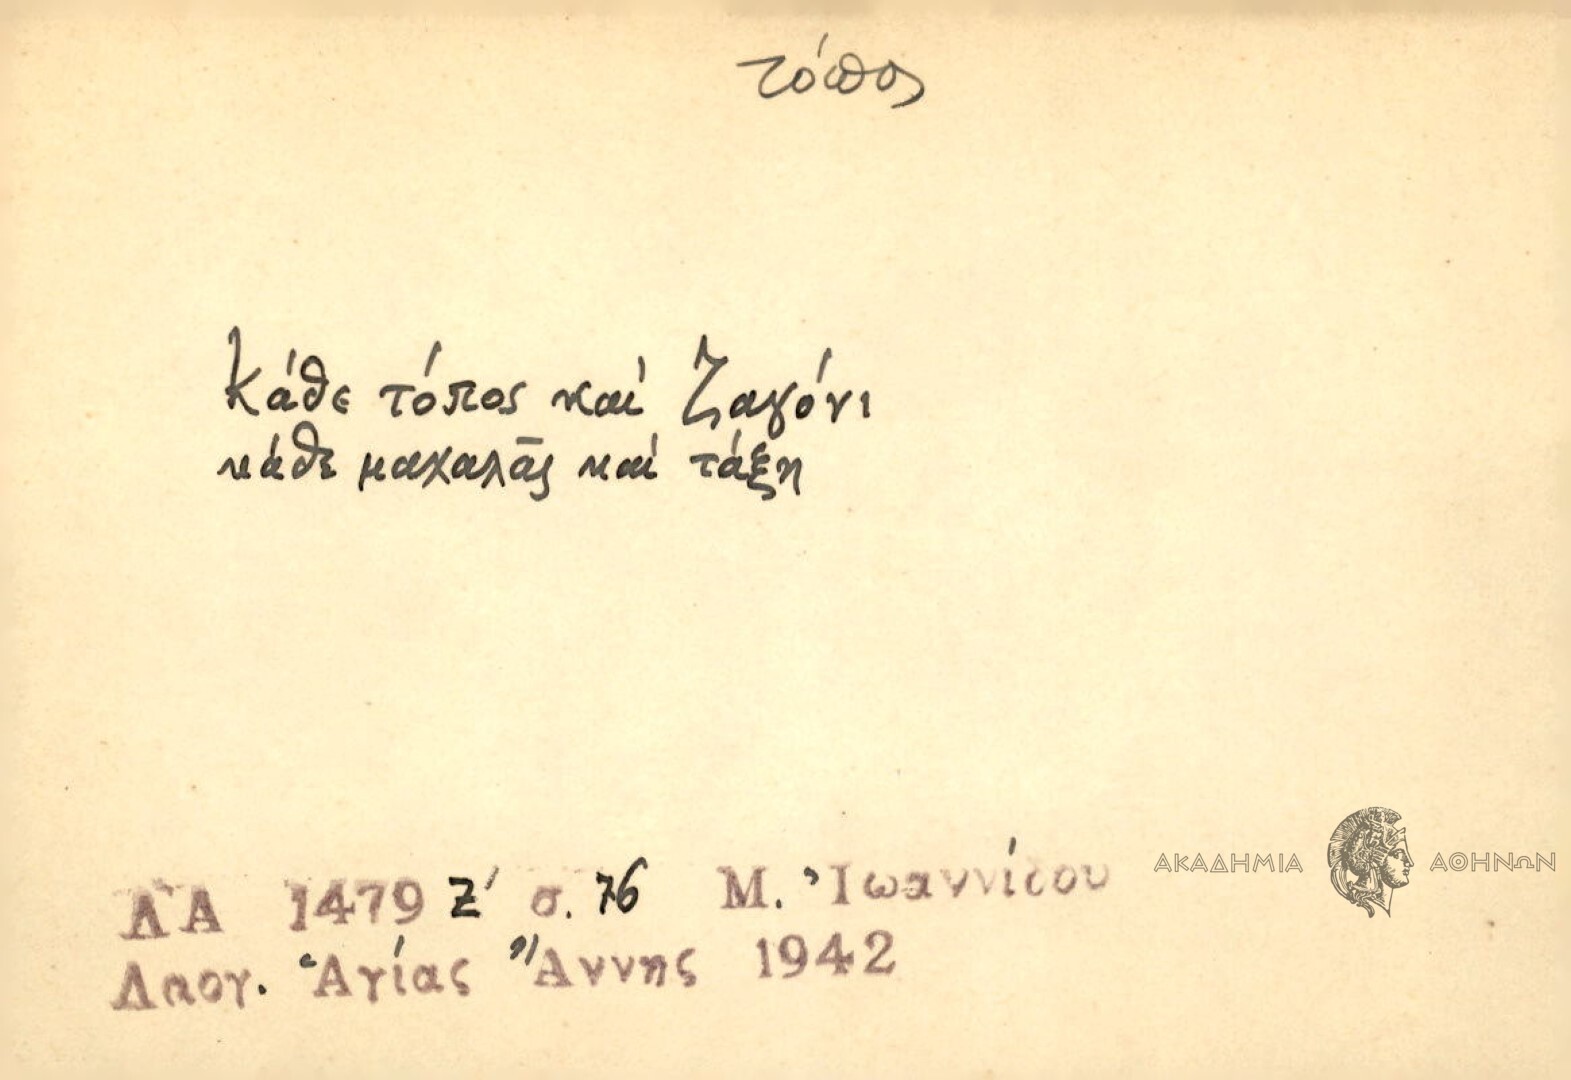 τόπος
Κάθε τόπος καί ζαγόνι
κάθε μαχαλᾶς καί τάξη
ΛΑ 1479 Ζ' σ. 76 Μ. Ἰωαννίδου
Λαογ. Ἁγίας Ἄννης 1942
ΑΚΑΔΗΜΙΑ ΑΘΗΝΩΝ